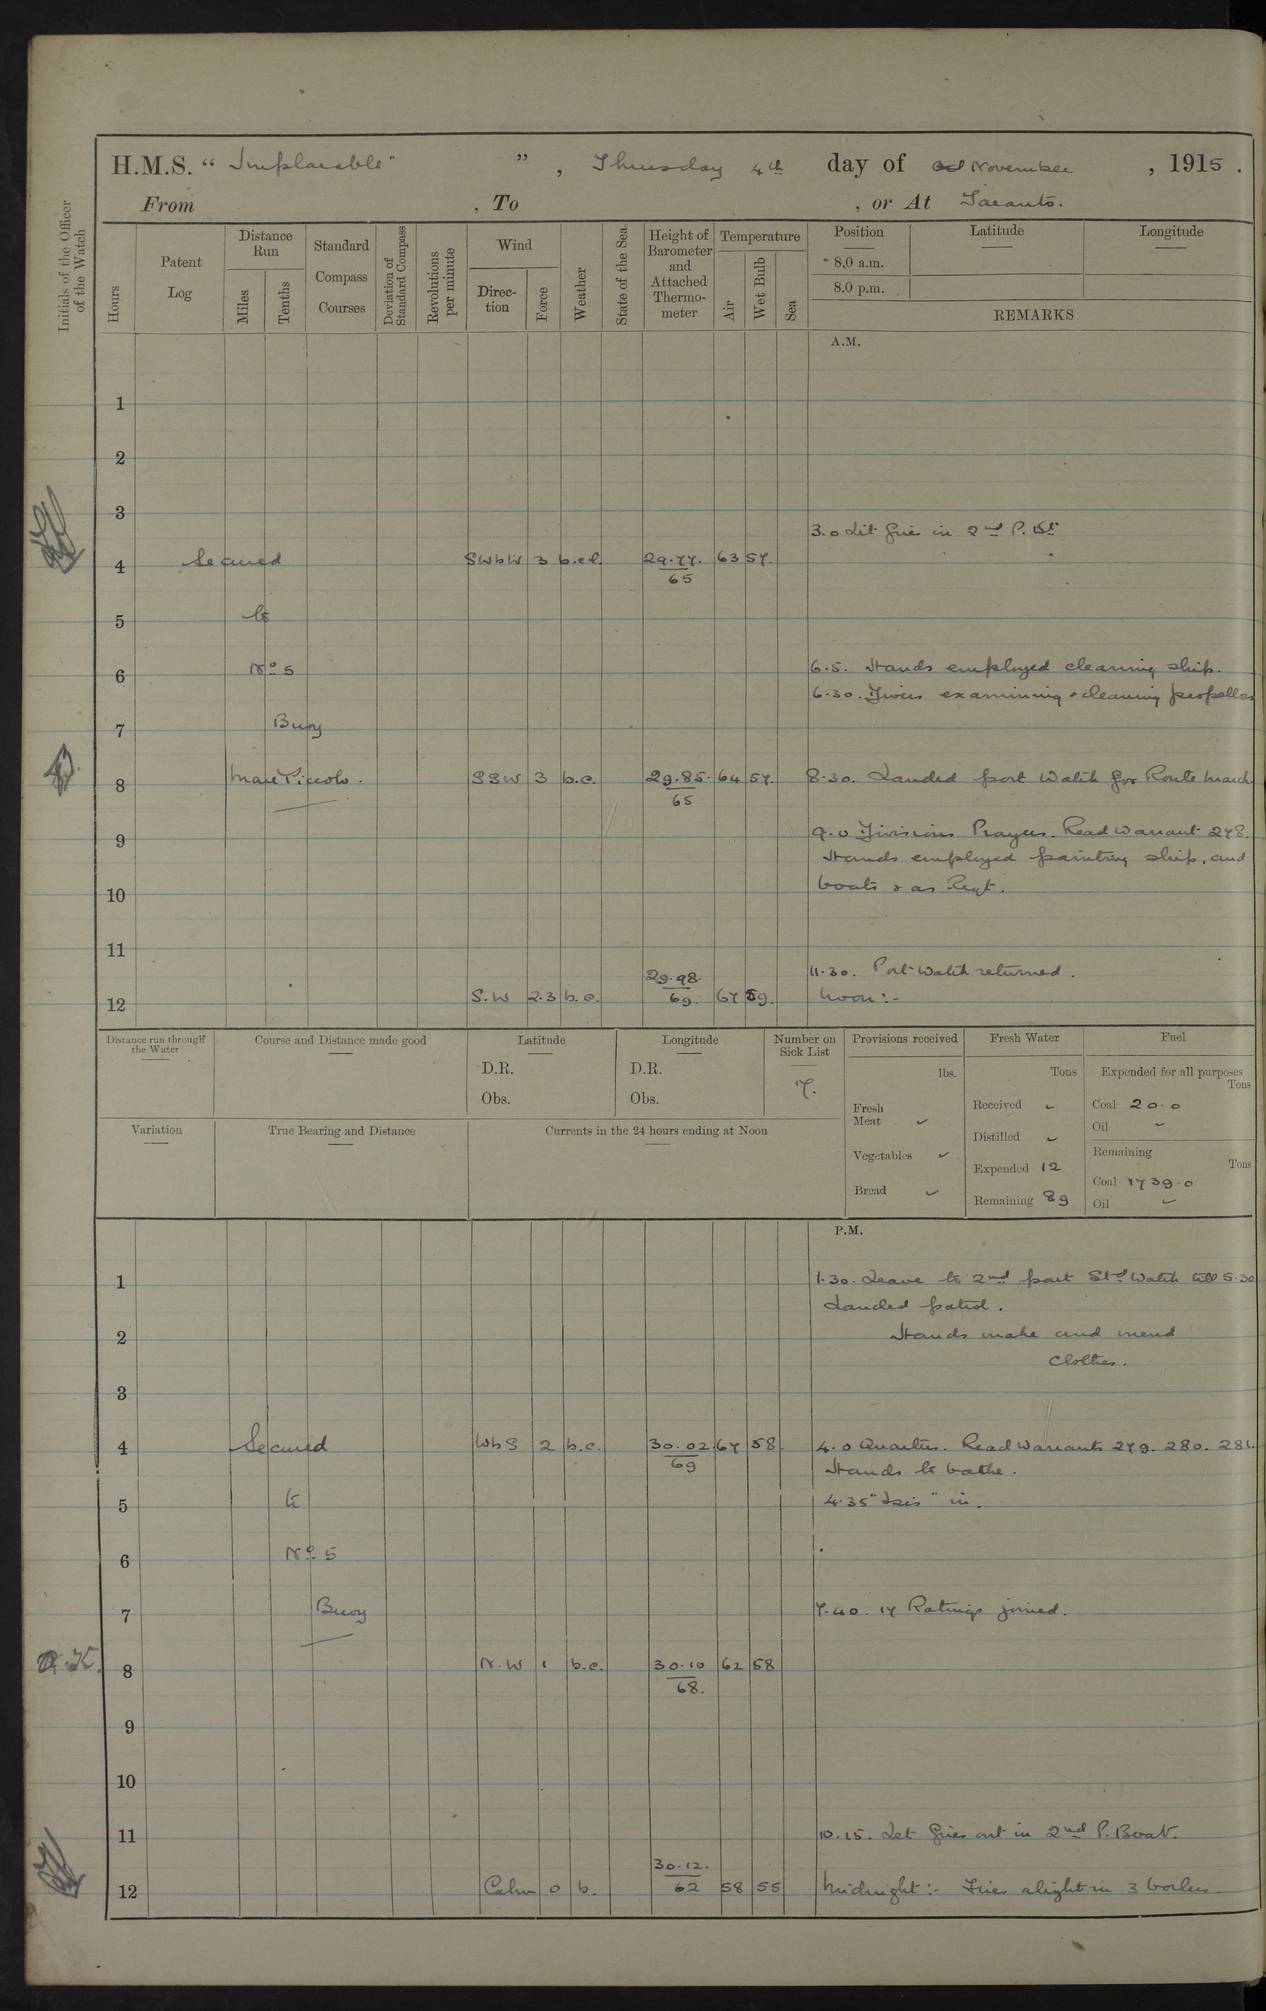 H.M.S. " Implacable " , Thursday 4th day of November , 1915 .
From , To , or At Taranto.
Initials of the Officer of the Watch
Hours
Patent Log
Distance Run
Miles
Tenths
Standard Compass Courses
Deviation of Standard Compass
Revolutions per minute
Wind
Direction
Force
Weather
State of the Sea
Height of Barometer and Attached Thermometer
Temperature
Air
Wet Bulb
Sea
Position
Latitude
Longitude
8.0 a.m.
8.0 p.m.
REMARKS
A.M.
1
2
3
3.0 Lit fires in 2nd P. Bt.
4 Secured SWbW 3 b.c.l. 29.77. 65 63 57.
5 to
6 No 5 6.5. Hands employed cleaning ship.
6.30. Divers examining & cleaning propellers
7 Buoy
8 Mare Piccolo. SSW 3 b.c. 29.85. 65 64 57. 8.30. Landed port Watch for Route March
9 9.0 Divisions Prayers. Read Warrant 278.
Hands employed painting ship, and
10 boats & as Reqt.
11 11.30. Port Watch returned.
12 S.W 2.3 b.c. 29.98. 69. 67 59. Noon:-
Distance run through the Water
Course and Distance made good
Latitude
D.R.
Obs.
Longitude
D.R.
Obs.
Number on Sick List
7.
Provisions received
lbs.
Fresh Meat ✓
Vegetables ✓
Bread ✓
Fresh Water
Tons
Received ✓
Distilled ✓
Expended 12
Remaining 89
Fuel
Expended for all purposes
Tons
Coal 20.0
Oil ✓
Remaining
Tons
Coal 1739.0
Oil ✓
Variation
True Bearing and Distance
Currents in the 24 hours ending at Noon
P.M.
1 1.30. Leave to 2nd part Stbd Watch till 5.30
Landed patrol.
2 Hands make and mend
clothes.
3
4 Secured WbS 2 b.c. 30.02. 69 67 58. 4.0 Quarters. Read Warrants 279. 280. 281.
Hands to bathe.
5 to 4.35 "Isis" in.
6 No 5
7 Buoy 7.40. 17 Ratings joined.
8 N.W 1 b.c. 30.10 68. 62 58
9
10
11 10.15. Let fires out in 2nd P. Boat.
12 Calm 0 b. 30.12. 62 58 55 Midnight:- Fires alight in 3 boilers